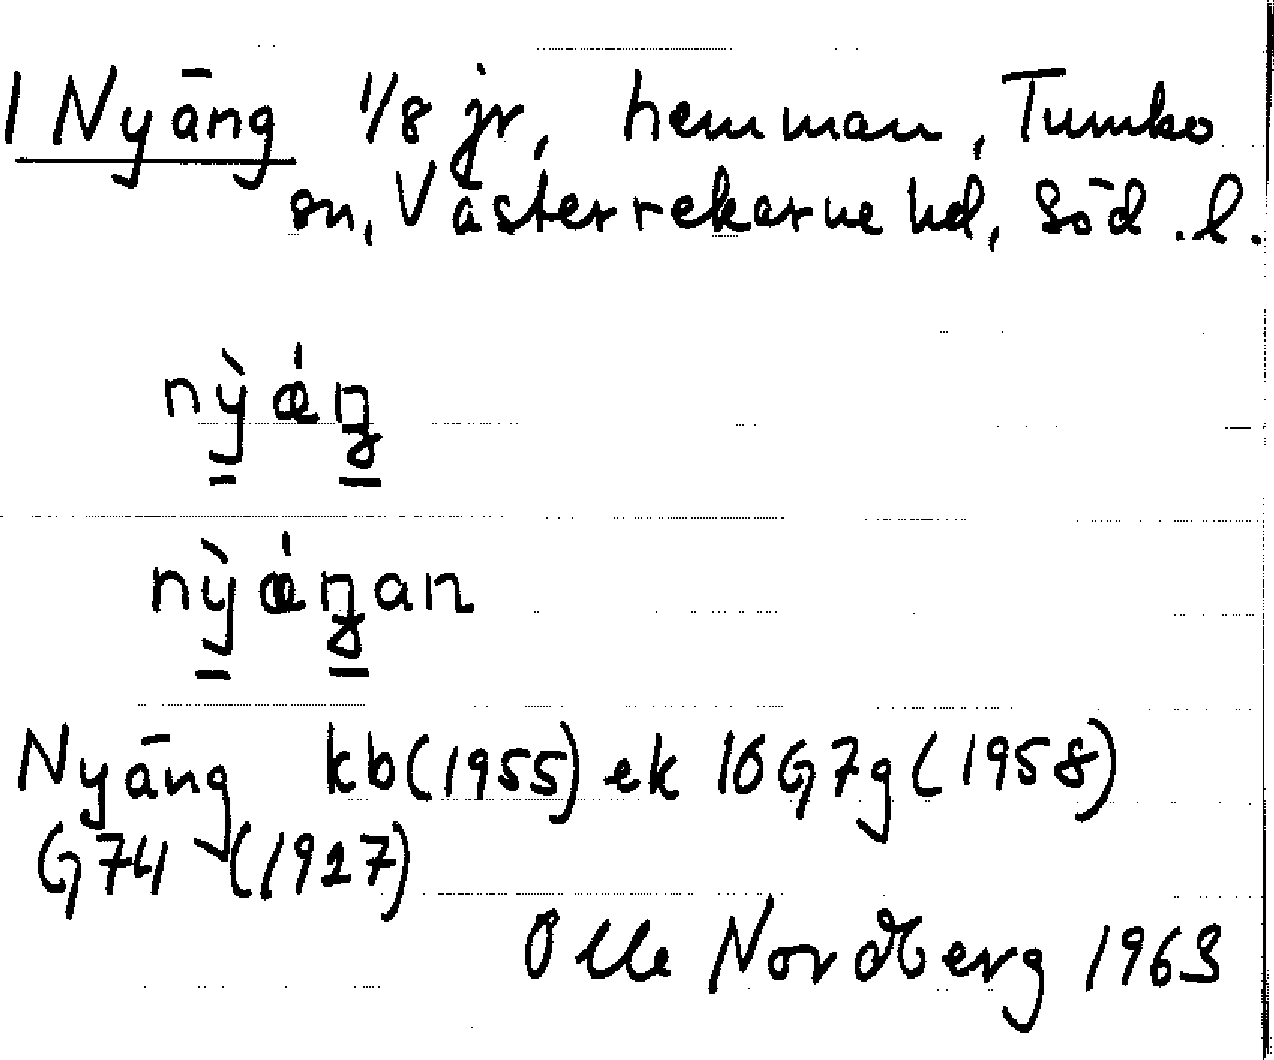 1 Nyäng 1/8 jr, hemman, Tumbo
sn, Västerrekarne hd, Söd. l.
nỳǽŋ
nỳǽŋan
Nyäng kb(1955) ek 10G7g(1958)
G74 (1927)
Olle Nordberg 1963